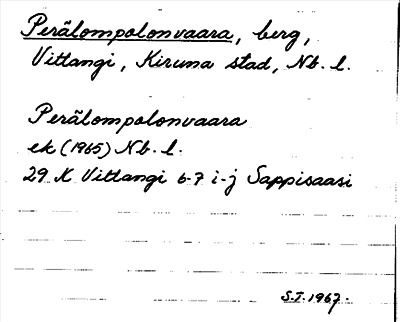 Perälompolonvaara, berg,
Vittangi, Kiruna stad, Nb. l.
Perälompolonvaara
ek (1965) Nb. l.
29 K Vittangi 6-7 i-j Sappisaasi
S.I. 1967.